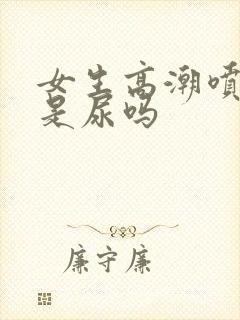 女生高潮喷
是尿吗
廉守廉